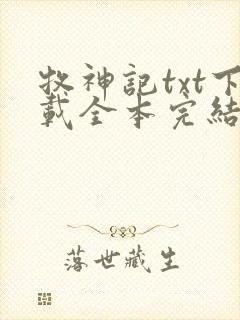 牧神記txt下
載全本完結
落世藏生